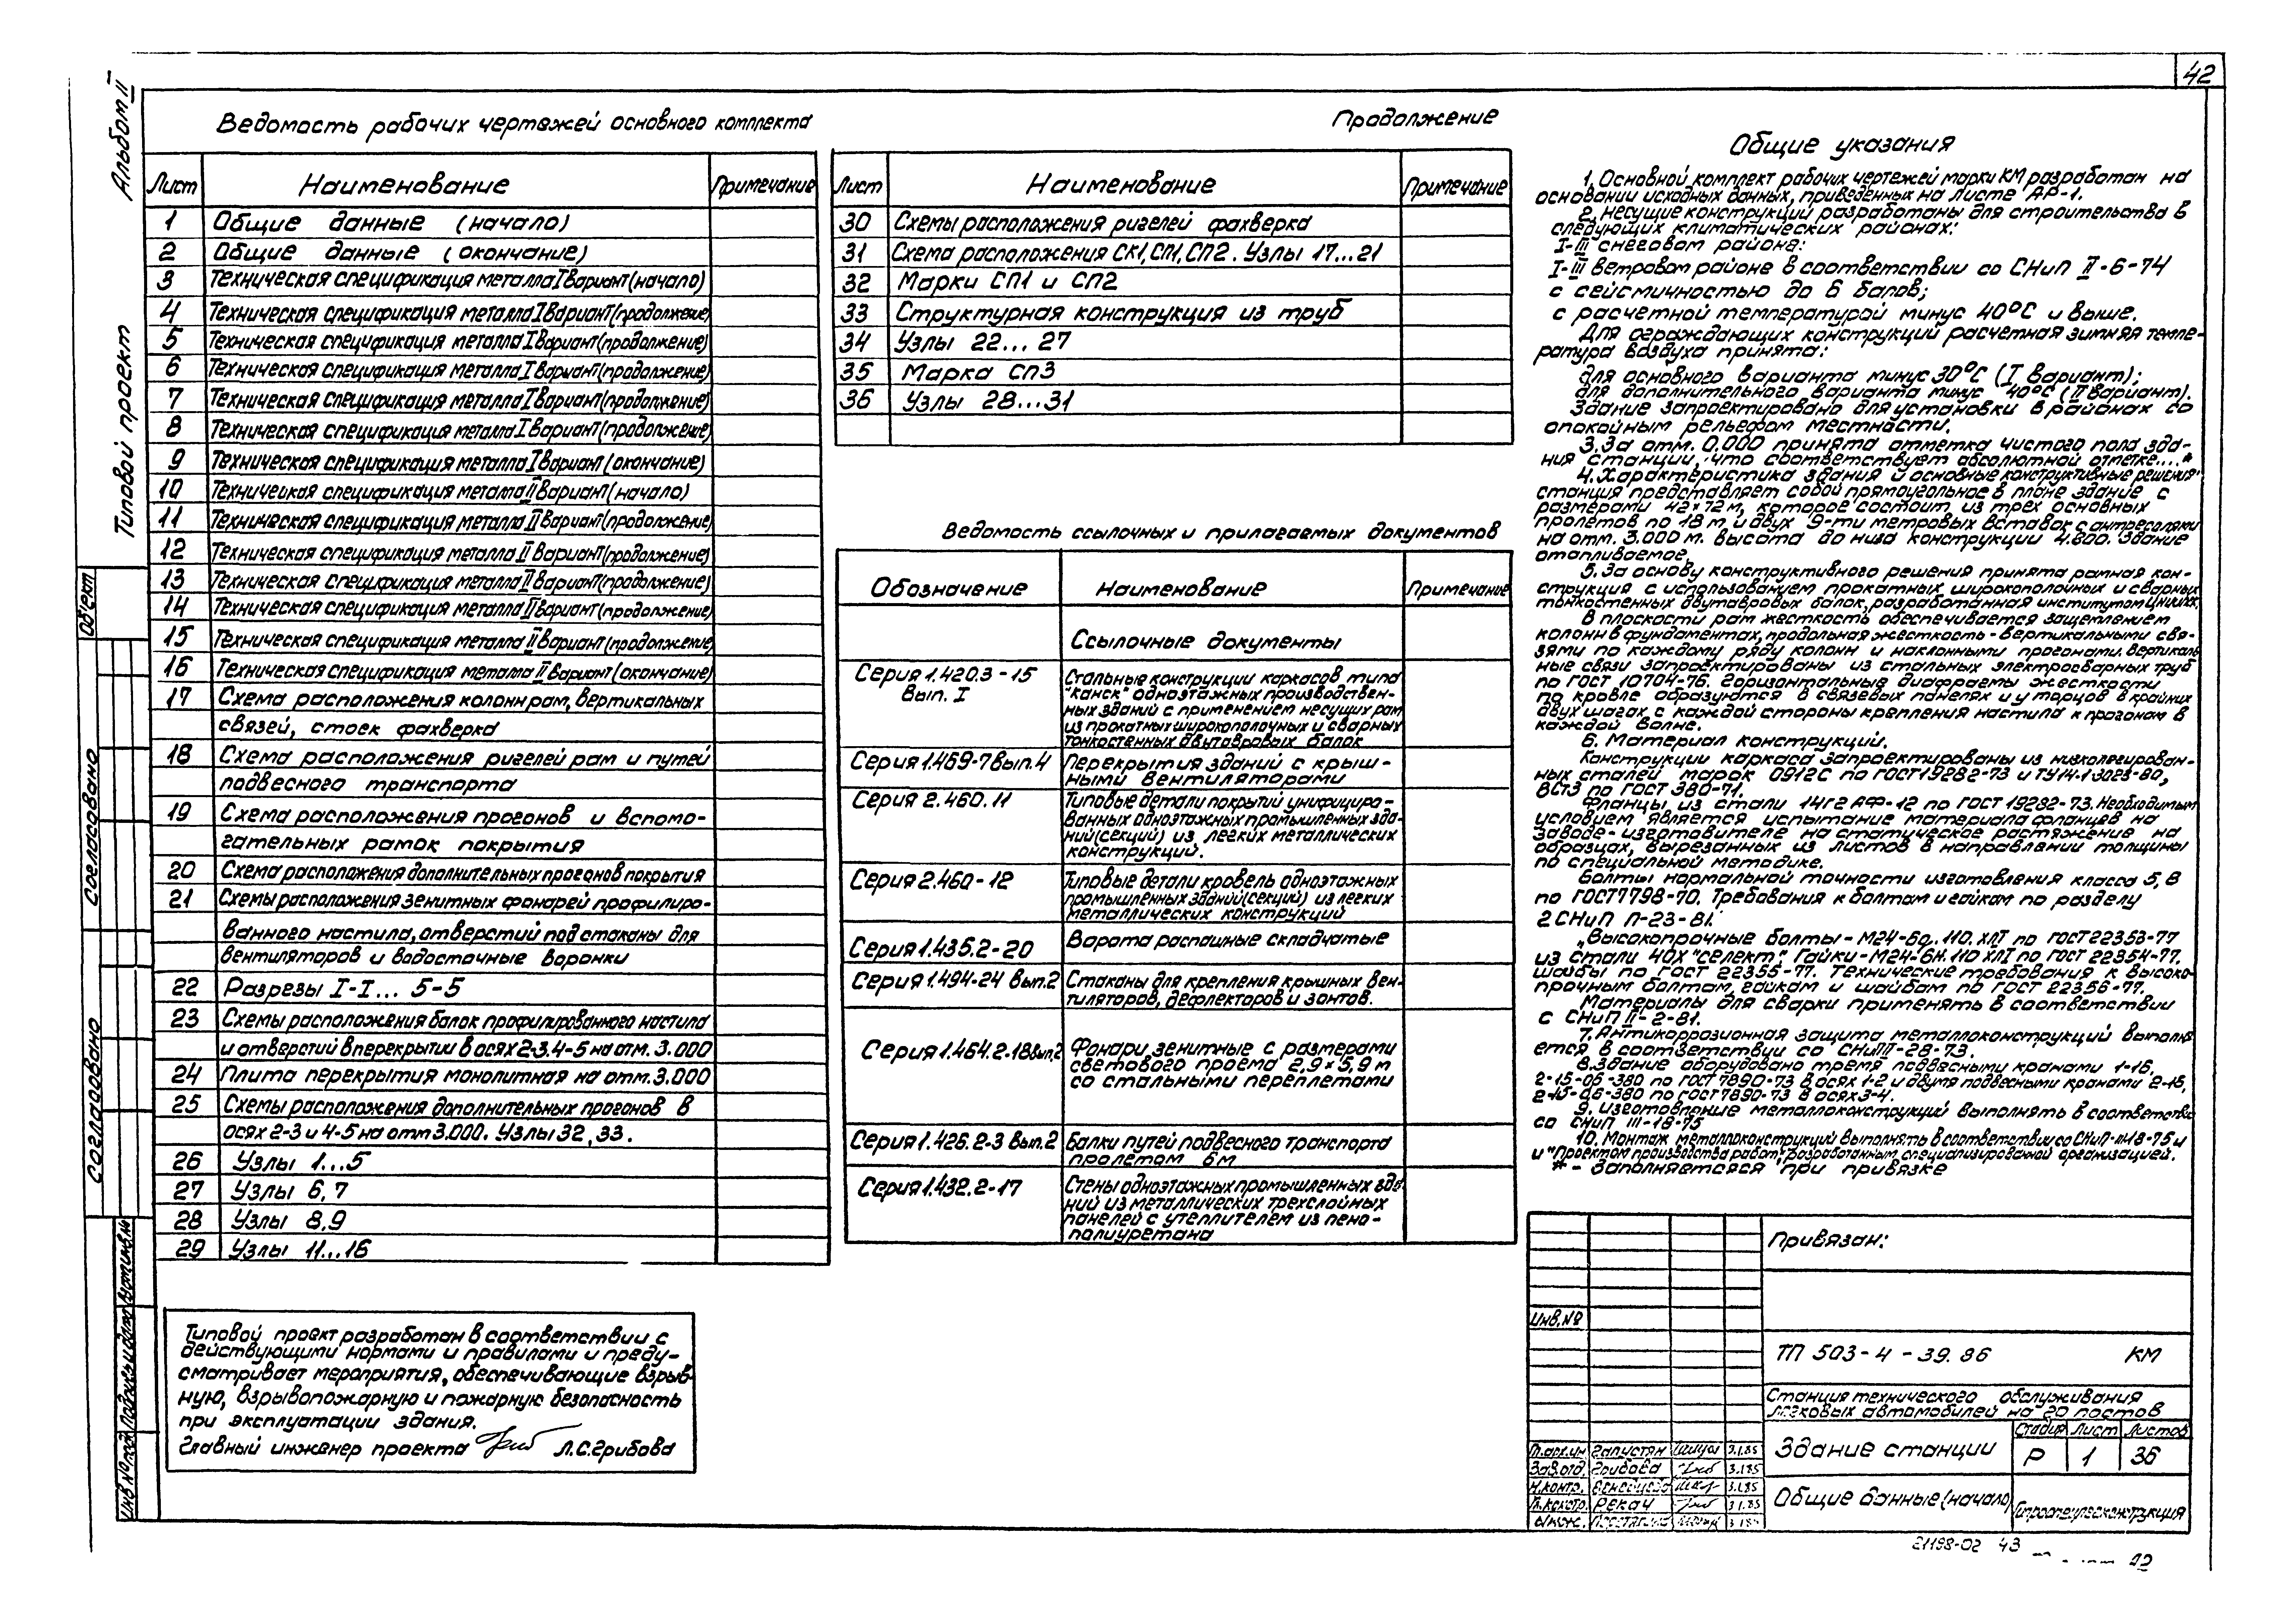 42
Альбом II
Типовой проект
Ведомость рабочих чертежей основного комплекта
Лист Наименование Примечание
1 Общие данные (начало)
2 Общие данные (окончание)
3 Техническая спецификация металла I вариант (начало)
4 Техническая спецификация металла I вариант (продолжение)
5 Техническая спецификация металла I вариант (продолжение)
6 Техническая спецификация металла I вариант (продолжение)
7 Техническая спецификация металла I вариант (продолжение)
8 Техническая спецификация металла I вариант (продолжение)
9 Техническая спецификация металла I вариант (окончание)
10 Техническая спецификация металла II вариант (начало)
11 Техническая спецификация металла II вариант (продолжение)
12 Техническая спецификация металла II вариант (продолжение)
13 Техническая спецификация металла II вариант (продолжение)
14 Техническая спецификация металла II вариант (продолжение)
15 Техническая спецификация металла II вариант (продолжение)
16 Техническая спецификация металла II вариант (окончание)
17 Схема расположения колонн рам, вертикальных
связей, стоек фахверка
18 Схема расположения ригелей рам и путей
подвесного транспорта
19 Схема расположения прогонов и вспомо-
гательных рамок покрытия
20 Схема расположения дополнительных прогонов покрытия
21 Схемы расположения зенитных фонарей профилиро-
ванного настила, отверстий под стаканы для
вентиляторов и водосточные воронки
22 Разрезы I-I... 5-5
23 Схемы расположения балок профилированного настила
и отверстий в перекрытии в осях 2-3, 4-5 на отм. 3.000
24 Плита перекрытия монолитная на отм. 3.000
25 Схемы расположения дополнительных прогонов в
осях 2-3 и 4-5 на отм 3.000. Узлы 32, 33.
26 Узлы 1...5
27 Узлы 6, 7
28 Узлы 8, 9
29 Узлы 11...16
Типовой проект разработан в соответствии с
действующими нормами и правилами и преду-
сматривает мероприятия, обеспечивающие взрыв-
ную, взрывопожарную и пожарную безопасность
при эксплуатации здания.
Главный инженер проекта Л.С. Грибова
Продолжение
Лист Наименование Примечание
30 Схемы расположения ригелей фахверка
31 Схема расположения СК1, СП1, СП2. Узлы 17...21
32 Марки СП1 и СП2
33 Структурная конструкция из труб
34 Узлы 22...27
35 Марка СП3
36 Узлы 28...31
Ведомость ссылочных и прилагаемых документов
Обозначение Наименование Примечание
Ссылочные документы
Серия 1.420.3-15 Стальные конструкции каркасов типа
Вып. I "Канск" одноэтажных производствен-
ных зданий с применением несущих рам
из прокатных широкополочных и сварных
тонкостенных двутавровых балок
Серия 1.469-7 вып.4 Перекрытия зданий с крыш-
ными вентиляторами
Серия 2.460.11 Типовые детали покрытий унифициро-
ванных одноэтажных промышленных зда-
ний (секций) из легких металлических
конструкций.
Серия 2.460-12 Типовые детали кровель одноэтажных
промышленных зданий (секций) из легких
металлических конструкций
Серия 1.435.2-20 Ворота распашные складчатые
Серия 1.494-24 вып.2 Стаканы для крепления крышных вен-
тиляторов, дефлекторов и зонтов.
Серия 1.464.2-18 вып.2 Фонари зенитные с размерами
светового проема 2,9×5,9 м
со стальными переплетами
Серия 1.426.2-3 вып.2 Балки путей подвесного транспорта
пролетом 6м
Серия 1.432.2-17 Стены одноэтажных промышленных зда-
ний из металлических трехслойных
панелей с утеплителем из пено-
полиуретана
Общие указания
1. Основной комплект рабочих чертежей марки КМ разработан на
основании исходных данных, приведенных на листе АР-1.
2. Несущие конструкции разработаны для строительства в
следующих климатических районах:
I-III снеговом районе:
I-III ветровом районе в соответствии со СНиП II-6-74
с сейсмичностью до 6 балов;
с расчетной температурой минус 40°С и выше.
Для ограждающих конструкций расчетная зимняя темпе-
ратура воздуха принята:
для основного варианта минус 30°С (I вариант);
для дополнительного варианта минус 40°С (II вариант).
Здание запроектировано для установки в районах со
спокойным рельефом местности.
3. За отм. 0.000 принята отметка чистого пола зда-
ния станции, что соответствует абсолютной отметке....*
4. Характеристика здания и основные конструктивные решения:
станция представляет собой прямоугольное в плане здание с
размерами 42×72м, которое состоит из трех основных
пролетов по 18 м и двух 9-ти метровых вставок с антресолями
на отм. 3.000 м. высота до низа конструкции 4.800. Здание
отапливаемое.
5. За основу конструктивного решения принята рамная кон-
струкция с использованием прокатных широкополочных и сварных
тонкостенных двутавровых балок, разработанная институтом
В плоскости рам жесткость обеспечивается защемлением
колонн в фундаментах, продольная жесткость - вертикальными свя-
зями по каждому ряду колонн и наклонными прогонами. Вертикаль-
ные связи запроектированы из стальных электросварных труб
по ГОСТ 10704-76. Горизонтальные диафрагмы жесткости
по кровле образуются в связевых панелях и у торцов в крайних
двух шагах, с каждой стороны крепления настила к прогонам в
каждой волне.
6. Материал конструкций.
Конструкции каркаса запроектированы из низколегирован-
ных сталей марок 09Г2С по ГОСТ 19282-73 и ТУ14.1.3023-80,
ВСт3 по ГОСТ 380-71.
Фланцы, из стали 14Г2АФ-12 по ГОСТ 19282-73. Необходимым
условием является испытание материала фланцев на
заводе-изготовителе на статическое растяжение на
образцах, вырезанных из листов в направлении толщины
по специальной методике.
Болты нормальной точности изготовления класса 5,8
по ГОСТ 7798-70. Требования к болтам и гайкам по разделу
2 СНиП П-23-81.
„Высокопрочные болты - М24-6g.110.ХЛI по ГОСТ 22353-77
из стали 40Х "селект". Гайки - М24-6Н.110 ХЛI по ГОСТ 22354-77.
шайбы по ГОСТ 22355-77. Технические требования к высоко-
прочным болтам, гайкам и шайбам по ГОСТ 22356-77.
Материалы для сварки применять в соответствии
с СНиП II-2-81.
7. Антикоррозионная защита металлоконструкций выполня-
ется в соответствии со СНиП III-28-73.
8. Здание оборудовано тремя подвесными кранами 1-15,
2-15-06-380 по ГОСТ 7890-73 в осях 1-2 и двумя подвесными кранами 2-15,
2-15-06-380 по ГОСТ 7890-73 в осях 3-4.
9. Изготовление металлоконструкций выполнять в соответствии
со СНиП III-18-75
10. Монтаж металлоконструкций выполнять в соответствии со СНиП-III-18-75 и
и "Проектом производства работ", разработанным специализированной организацией.
* - Заполняется при привязке
Привязан:
Инв.№
ТП 503-4-39.86 КМ
Станция технического обслуживания
легковых автомобилей на 20 постов
Здание станции
Стадия Лист Листов
Р 1 36
Общие данные (начало)
Гл.арх.ин Капустян 3.1.85
Зав.отд. Грибова 3.1.85
Н.контр. 3.1.85
Гл.констр. Рекач 3.1.85
Инж. 3.1.85
Объект
Согласовано
Согласовано
Инв № подл. Подпись и дата Взам.инв.№
21198-02 43